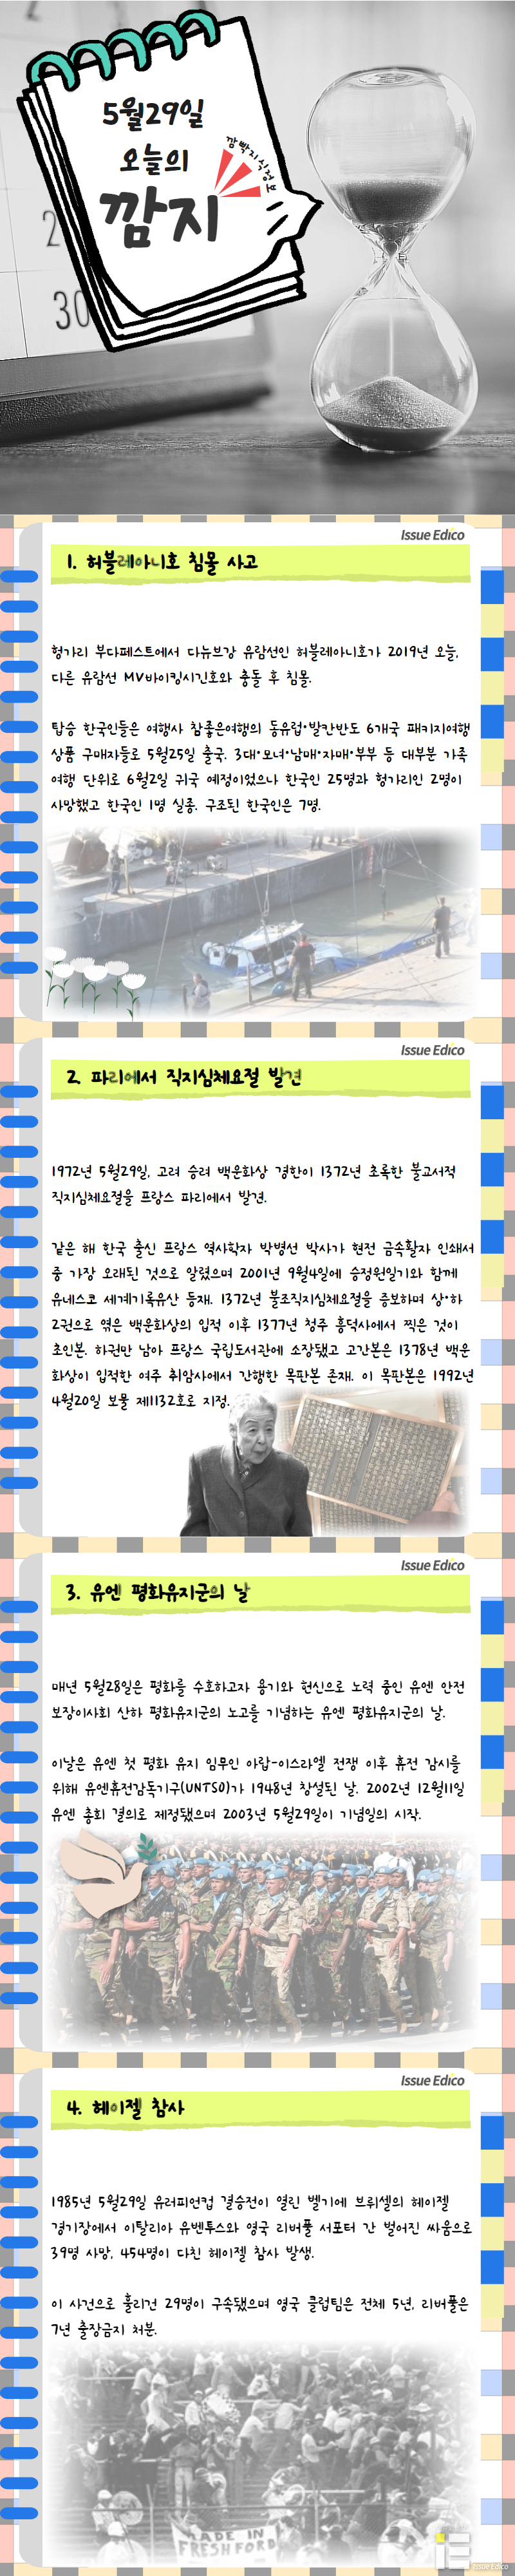 5월29일
오늘의
깜지
깜빡지식정보
2
30
Issue Edico
1. 허블레아니호 침몰 사고
헝가리 부다페스트에서 다뉴브강 유람선인 허블레아니호가 2019년 오늘,
다른 유람선 MV바이킹시긴호와 충돌 후 침몰.
탑승 한국인들은 여행사 참좋은여행의 동유럽·발칸반도 6개국 패키지여행
상품 구매자들로 5월25일 출국. 3대·모녀·남매·자매·부부 등 대부분 가족
여행 단위로 6월2일 귀국 예정이었으나 한국인 25명과 헝가리인 2명이
사망했고 한국인 1명 실종. 구조된 한국인은 7명.
Issue Edico
2. 파리에서 직지심체요절 발견
1972년 5월29일, 고려 승려 백운화상 경한이 1372년 초록한 불교서적
직지심체요절을 프랑스 파리에서 발견.
같은 해 한국 출신 프랑스 역사학자 박병선 박사가 현전 금속활자 인쇄서
중 가장 오래된 것으로 알렸으며 2001년 9월4일에 승정원일기와 함께
유네스코 세계기록유산 등재. 1372년 불조직지심체요절을 증보하며 상·하
2권으로 엮은 백운화상의 입적 이후 1377년 청주 흥덕사에서 찍은 것이
초인본. 하권만 남아 프랑스 국립도서관에 소장됐고 고간본은 1378년 백운
화상이 입적한 여주 취암사에서 간행한 목판본 존재. 이 목판본은 1992년
4월20일 보물 제1132호로 지정.
Issue Edico
3. 유엔 평화유지군의 날
매년 5월28일은 평화를 수호하고자 용기와 헌신으로 노력 중인 유엔 안전
보장이사회 산하 평화유지군의 노고를 기념하는 유엔 평화유지군의 날.
이날은 유엔 첫 평화 유지 임무인 아랍-이스라엘 전쟁 이후 휴전 감시를
위해 유엔휴전감독기구(UNTSO)가 1948년 창설된 날. 2002년 12월11일
유엔 총회 결의로 제정됐으며 2003년 5월29일이 기념일의 시작.
Issue Edico
4. 헤이젤 참사
1985년 5월29일 유러피언컵 결승전이 열린 벨기에 브뤼셀의 헤이젤
경기장에서 이탈리아 유벤투스와 영국 리버풀 서포터 간 벌어진 싸움으로
39명 사망, 454명이 다친 헤이젤 참사 발생.
이 사건으로 훌리건 29명이 구속됐으며 영국 클럽팀은 전체 5년, 리버풀은
7년 출장금지 처분.
MADE IN
FRESHFORD
iE
Issue Edico